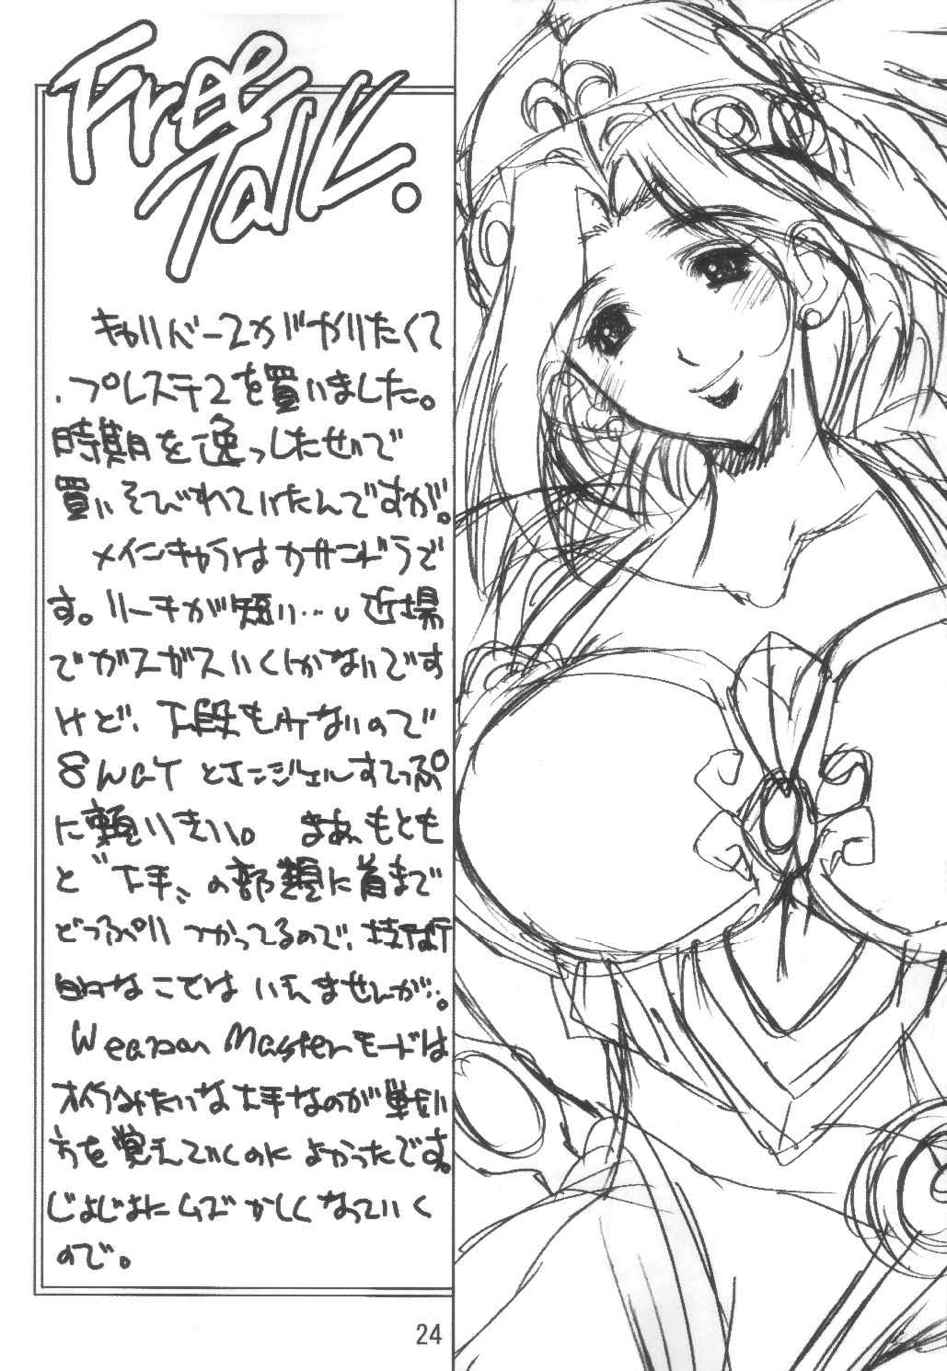 Free
Talk.
キャリバー2がやりたくて
プレステ2を買いました。
時期を逸っしたせいで
買いそびれていたんですが。
メインキャラはカサンドラで
す。リーチが短い…近場
でガスガスいくしかないです
けど、下段も少ないので
8wayとエンジェルすてっぷ
に頼りきり。まあ、もとも
と〝下手〟の部類に首まで
どっぷりつかってるので、技術
的なことはいえませんが…。
Weapon Masterモードは
オイラみたいな下手なのが戦い
方を覚えていくのによかったです。
じょじょにムズかしくなっていく
ので。
24